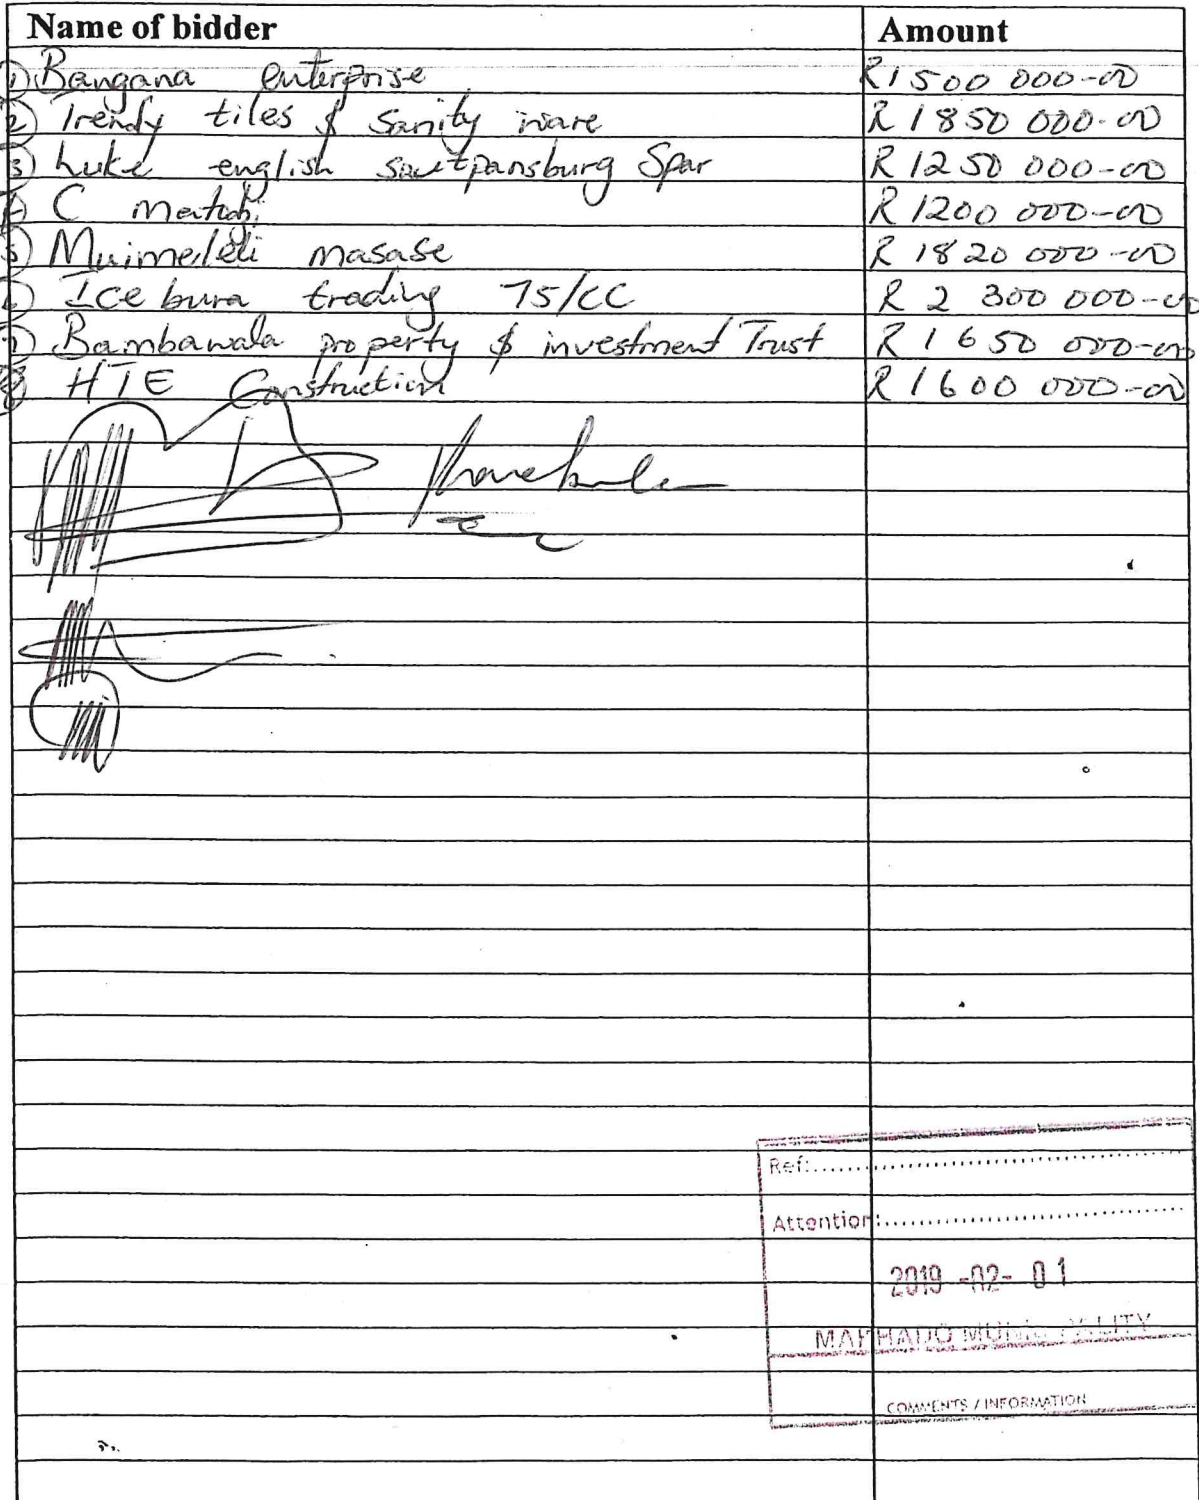 Name of bidder Amount
1) Bangana enterprise R1 500 000-00
2) Trendy tiles & Sanity ware R 1850 000-00
3) Luke english soutpansburg Spar R 1250 000-00
C R 1200 000-00
5) masase R 1820 000-00
Ice burg trading 75/CC R 2 300 000-00
7) Bambawala property & investment Trust R 1 650 000-00
8) HTE Construction R 1 600 000-00
Ref:
Attention:
2019 -02- 01
MAKHADO MUNICIPALITY
COMMENTS / INFORMATION